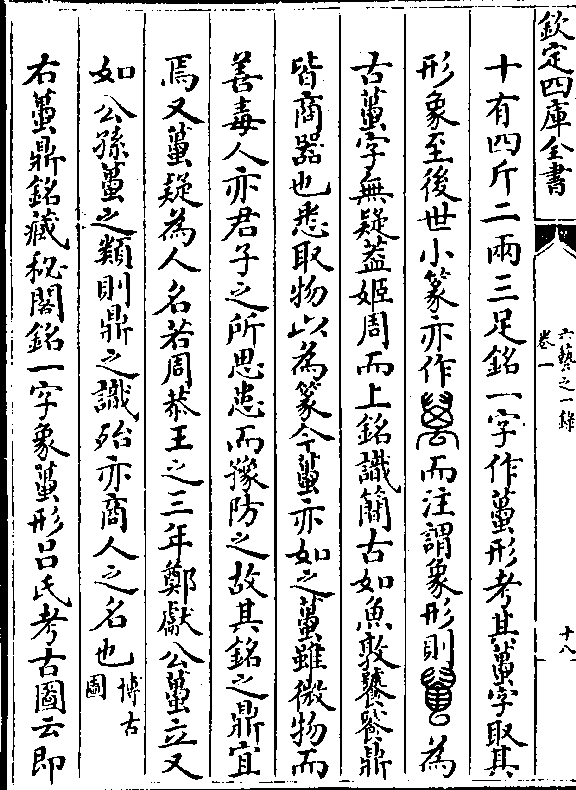 欽定四庫全書
六藝之一錄
卷一
十八
十有四斤二兩三足銘一字作蠆形考其蠆字取其
形象至後世小篆亦作而注謂象形則為
古蠆字無疑葢姬周而上銘識簡古如魚敦饕餮鼎
皆商器也悉取物以為篆今蠆亦如之蠆雖微物而
善毒人亦君子之所思患而豫防之故其銘之鼎宜
焉又蠆疑為人名若周恭王之三年鄭獻公蠆立又
如公孫蠆之類則鼎之識殆亦商人之名也博古
圖
右蠆鼎銘藏秘閣銘一字象蠆形吕氏考古圖云即